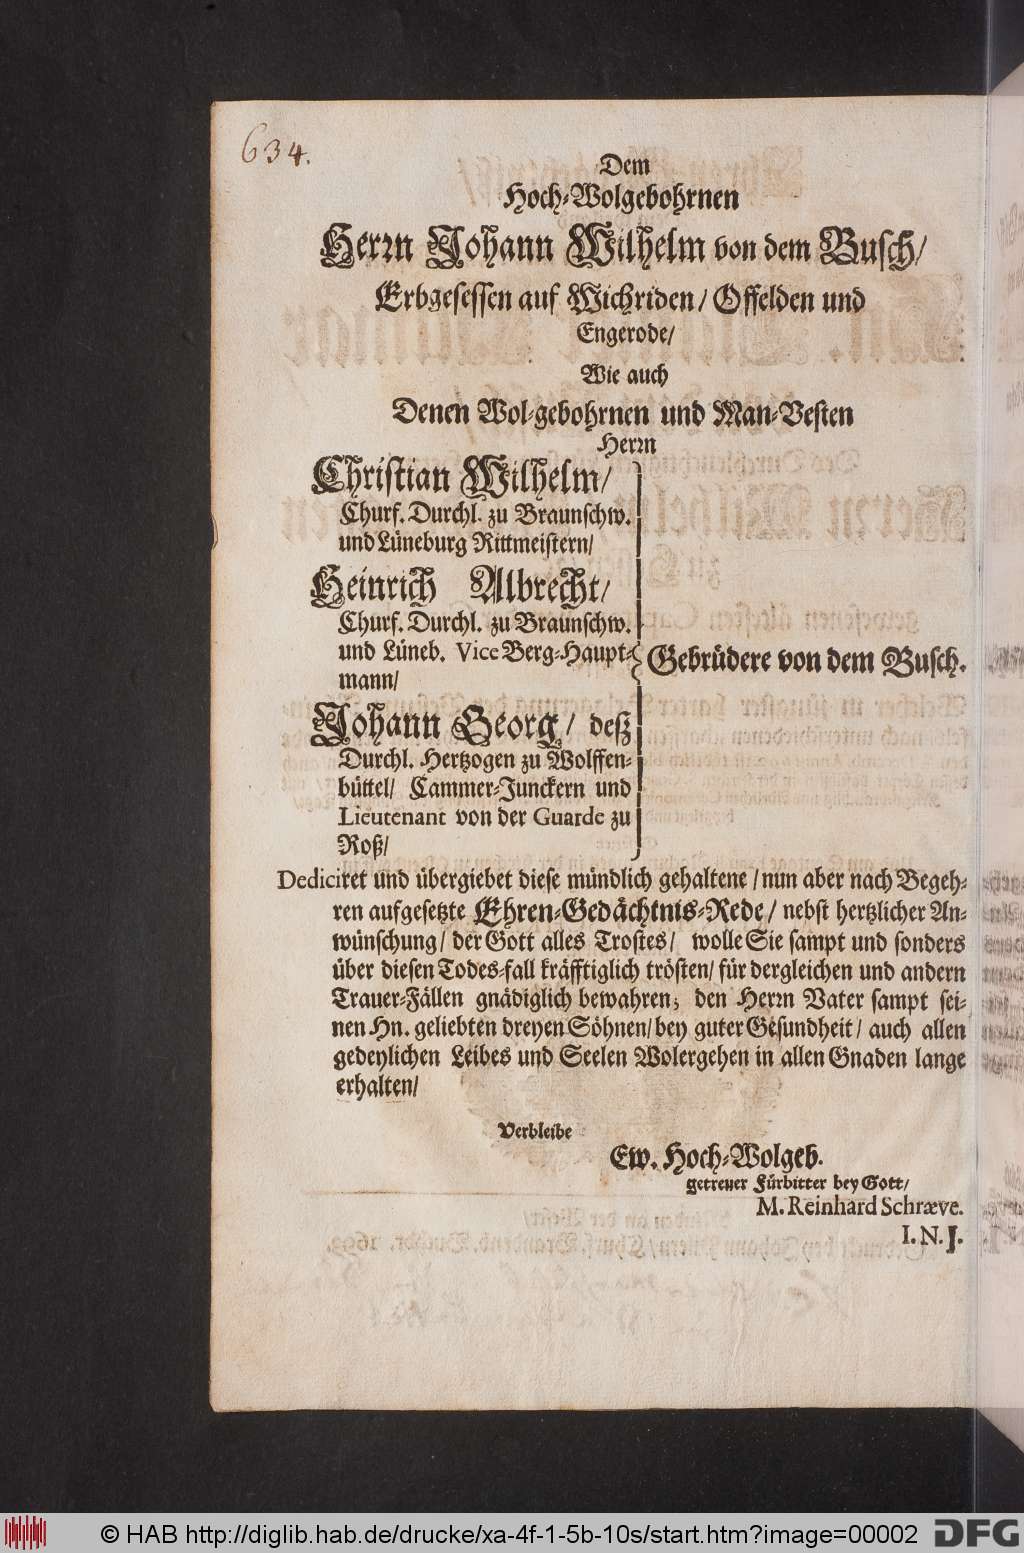 634.
Dem
Hoch-Wolgebohrnen
Herrn Johann Wilhelm von dem Busch/
Erbgesessen auf Wichriden/ Offelden und
Engerode/
Wie auch
Denen Wol-gebohrnen und Man-Vesten
Herrn
Christian Wilhelm/
Churf. Durchl. zu Braunschw.
und Lüneburg Rittmeistern/
Heinrich Albrecht/
Churf. Durchl. zu Braunschw.
und Lüneb. Vice Berg-Haupt-
mann/
Johann Georg/ deß
Durchl. Hertzogen zu Wolffen-
büttel/ Cammer-Junckern und
Lieutenant von der Guarde zu
Roß/
Gebrüdere von dem Busch.
Dediciret und übergiebet diese mündlich gehaltene/ nun aber nach Begeh-
ren aufgesetzte Ehren-Gedächtnis-Rede/ nebst hertzlicher An-
wünschung/ der Gott alles Trostes/ wolle Sie sampt und sonders
über diesen Todes-fall kräfftiglich trösten/ für dergleichen und andern
Trauer-Fällen gnädiglich bewahren; den Herrn Vater sampt sei-
nen Hn. geliebten dreyen Söhnen/ bey guter Gesundheit/ auch allen
gedeylichen Leibes und Seelen Wolergehen in allen Gnaden lange
erhalten/
Verbleibe
Ew. Hoch-Wolgeb.
getreuer Fürbitter bey Gott/
M. Reinhard Schræve.
I. N. J.
© HAB http://diglib.hab.de/drucke/xa-4f-1-5b-10s/start.htm?image=00002
DFG